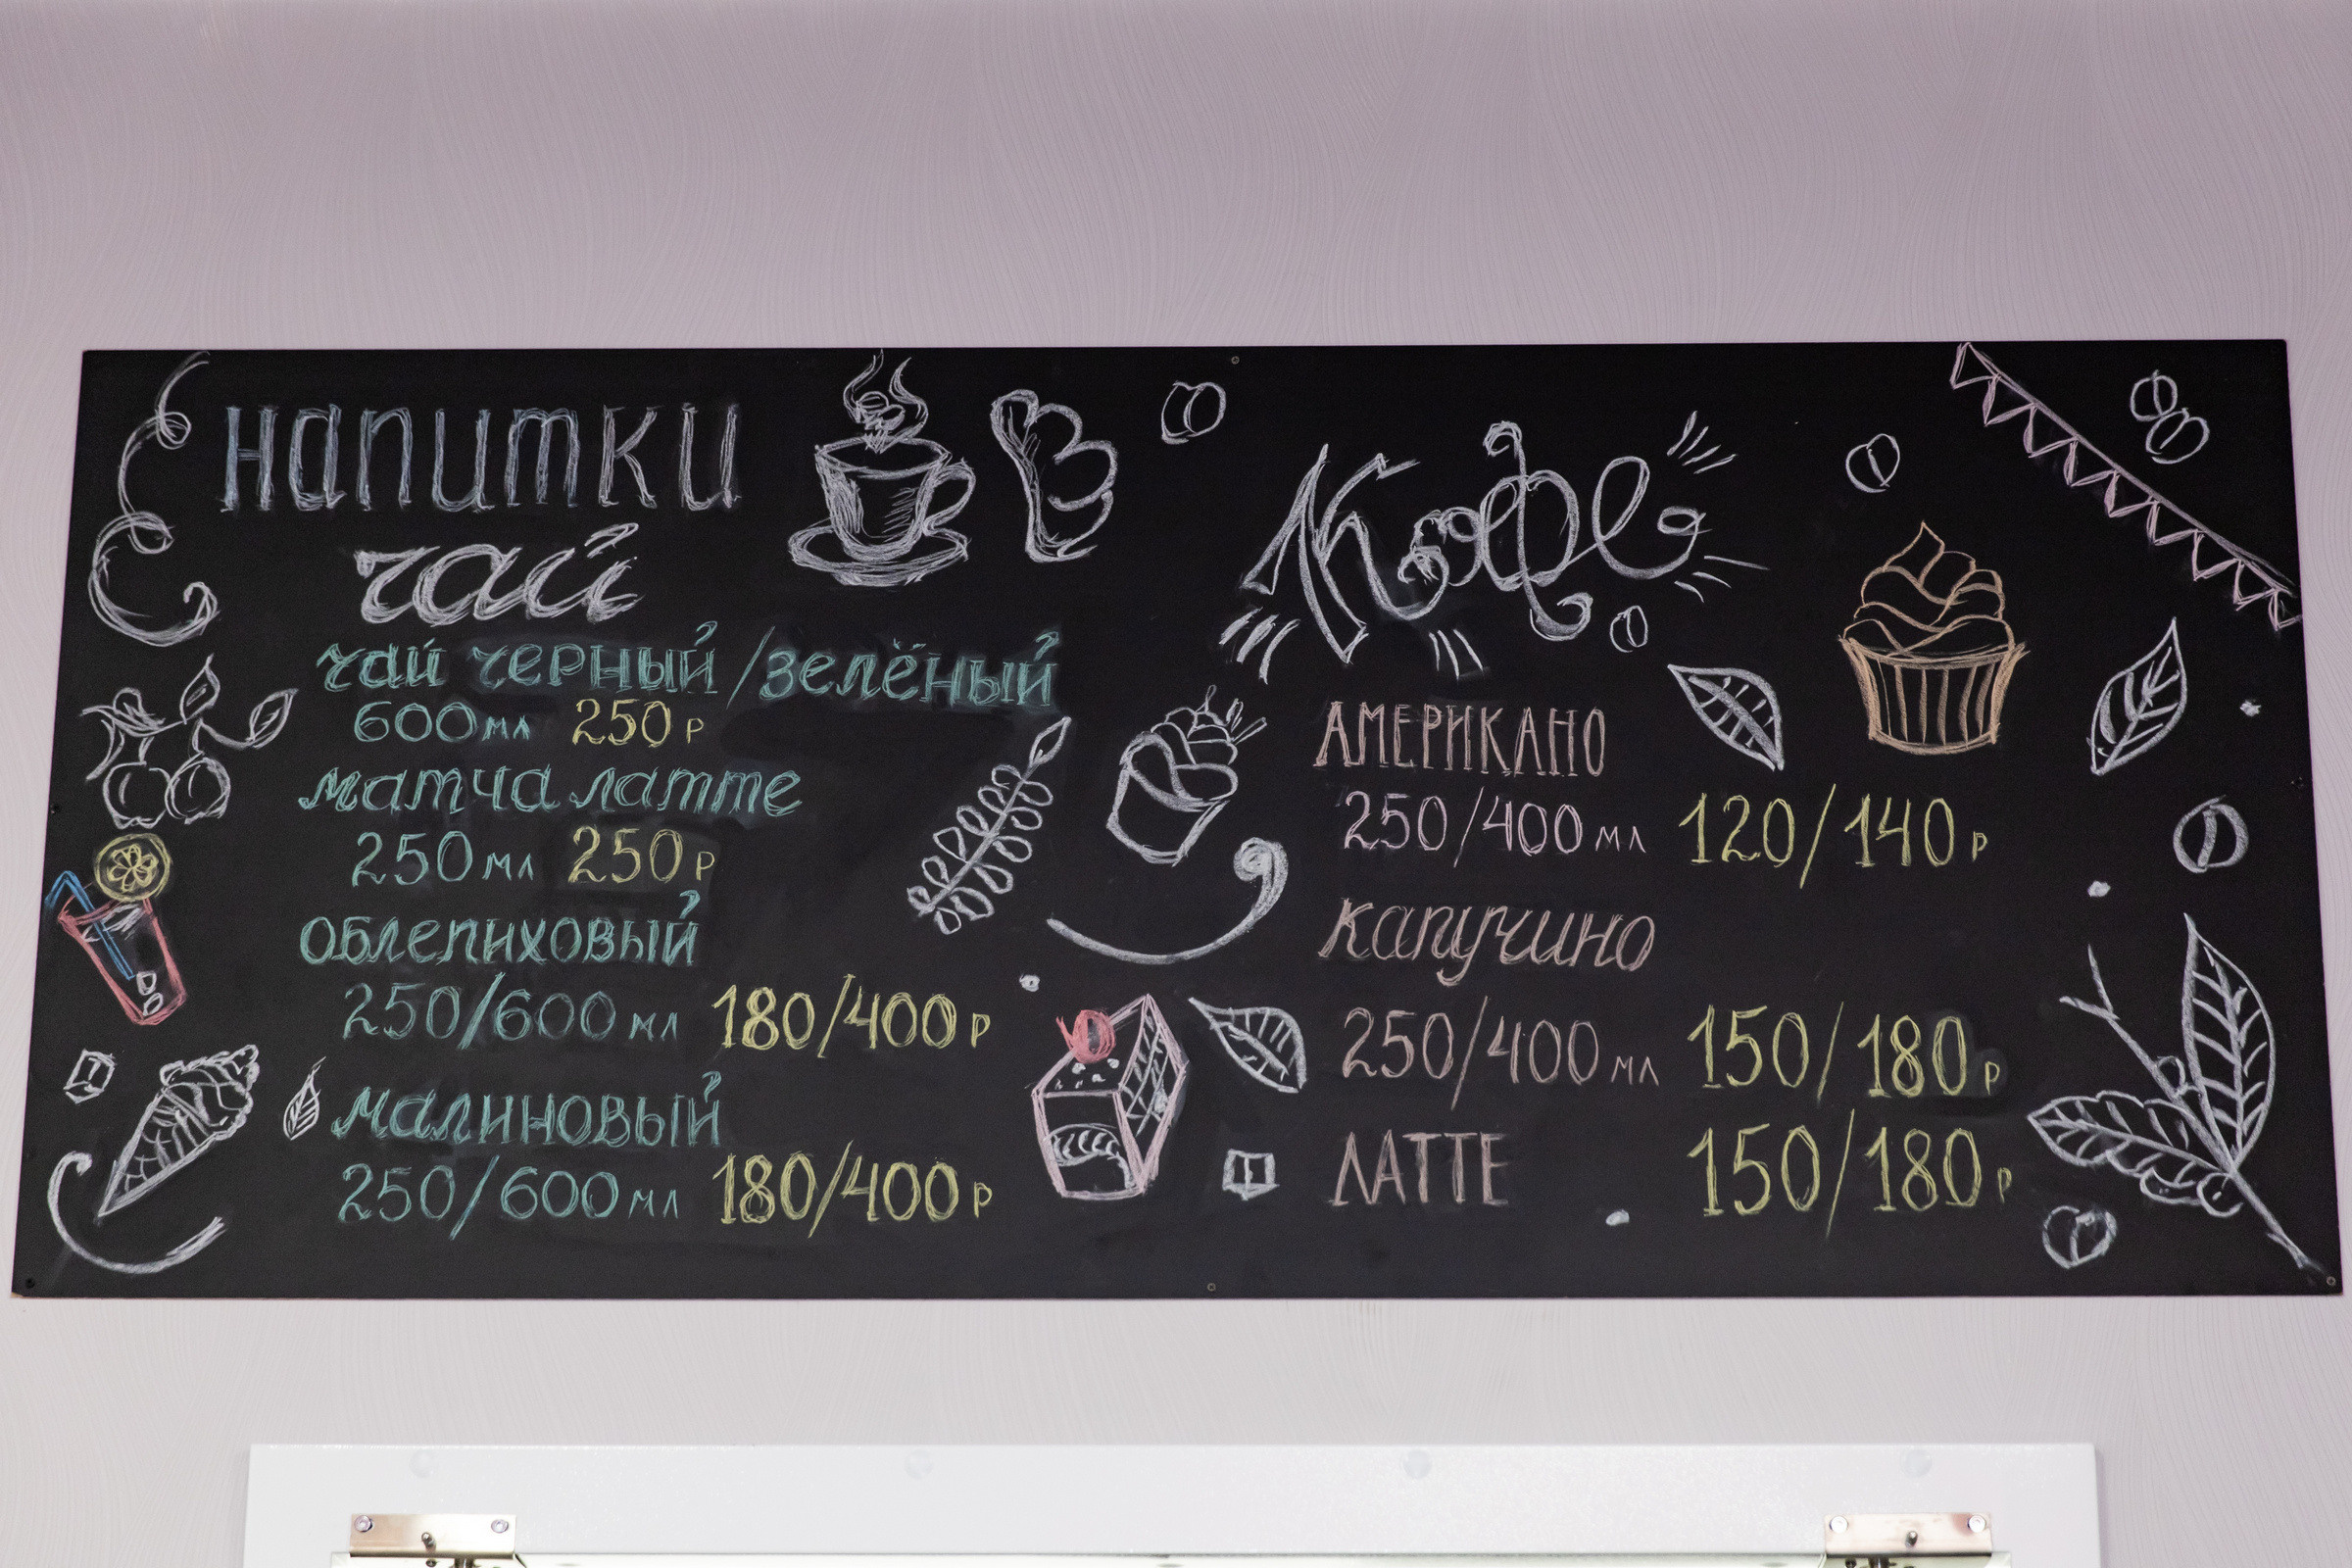 напитки
чай
чай черный/зелёный
600мл 250р
матча латте
250мл 250р
облепиховый
250/600мл 180/400р
малиновый
250/600мл 180/400р
Кофе
АМЕРИКАНО
250/400мл 120/140р
капучино
250/400мл 150/180р
ЛАТТЕ 150/180р